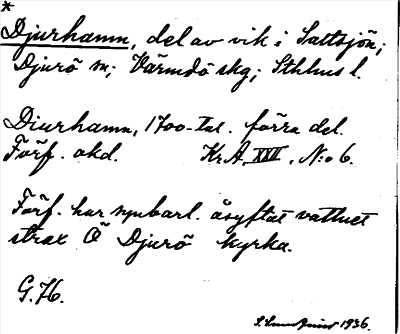 *
Djurhamn, del av vik i Saltsjön;
Djurö sn; Värmdö skg; Sthlms l.
Diurhamn, 1700-tal. förra del.
Förf. okd. Kr.A. XXVI, N:o 6.
Förf. har uppbarl. åsyftat vattnet
strax Ö Djurö kyrka.
G.H.
1936.